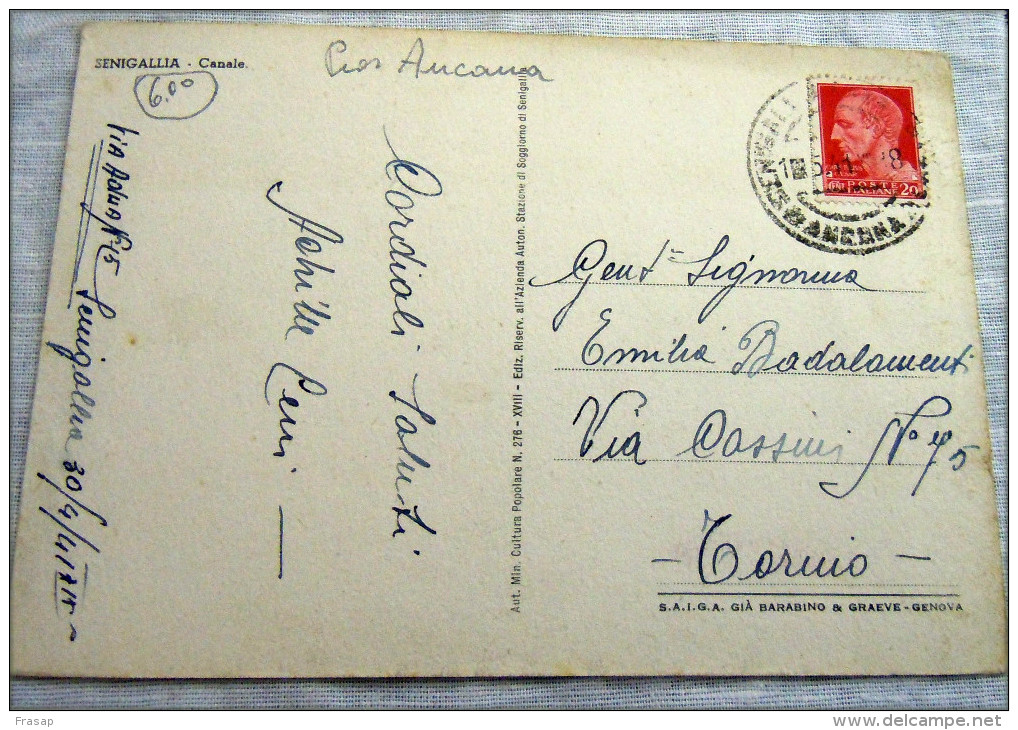 SENIGALLIA - Canale.
6.00
Ancona
Cordiali Saluti
Achille Ceri
Senigallia 30/4/41 XIX
Aut. Min. Cultura Popolare N. 276 - XVIII - Ediz. Riserv. all'Azienda Auton. Stazione di Soggiorno di Senigallia
ANCONA
POSTE
ITALIANE 20
Gent^e Signorina
Emilia Badalamenti
Via Cassini No 75
- Torino -
S.A.I.G.A. GIÀ BARABINO & GRAEVE - GENOVA
Frasap
www.delcampe.net